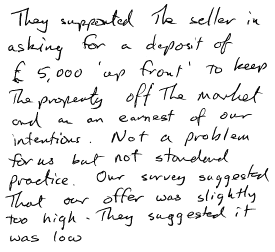 They supported the seller in
asking for a deposit of
£5,000 'up front' to keep
The property off The market
and as an earnest of our
intentions. Not a problem
for us but not standard
practice. Our survey suggested
That our offer was slightly
too high - They suggested it
was low